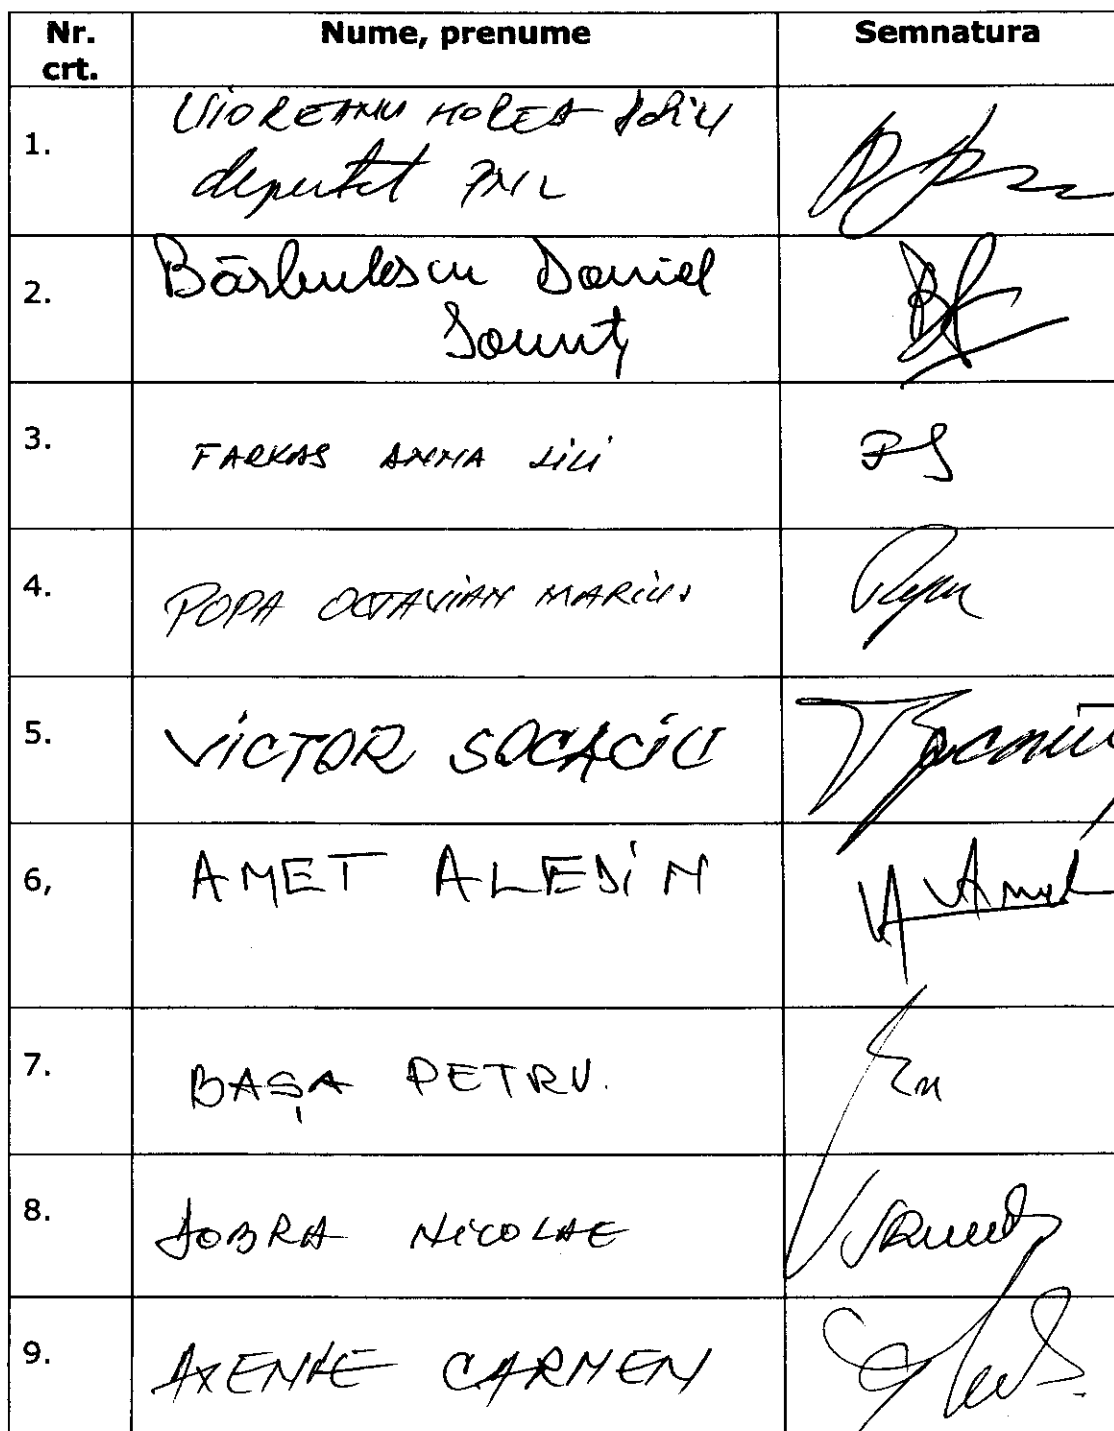 Nr. crt. Nume, prenume Semnatura
1. UIOREANU HOREA
deputat PNL
2. Bărbulescu Daniel
Ionuț
3. FARKAS ANNA LILI
4. POPA OCTAVIAN MARIUS
5. VICTOR SOCACIU
6, AMET ALEDIN
7. BAȘA PETRU.
8. DOBRA NICOLAE
9. AXENIE CARMEN